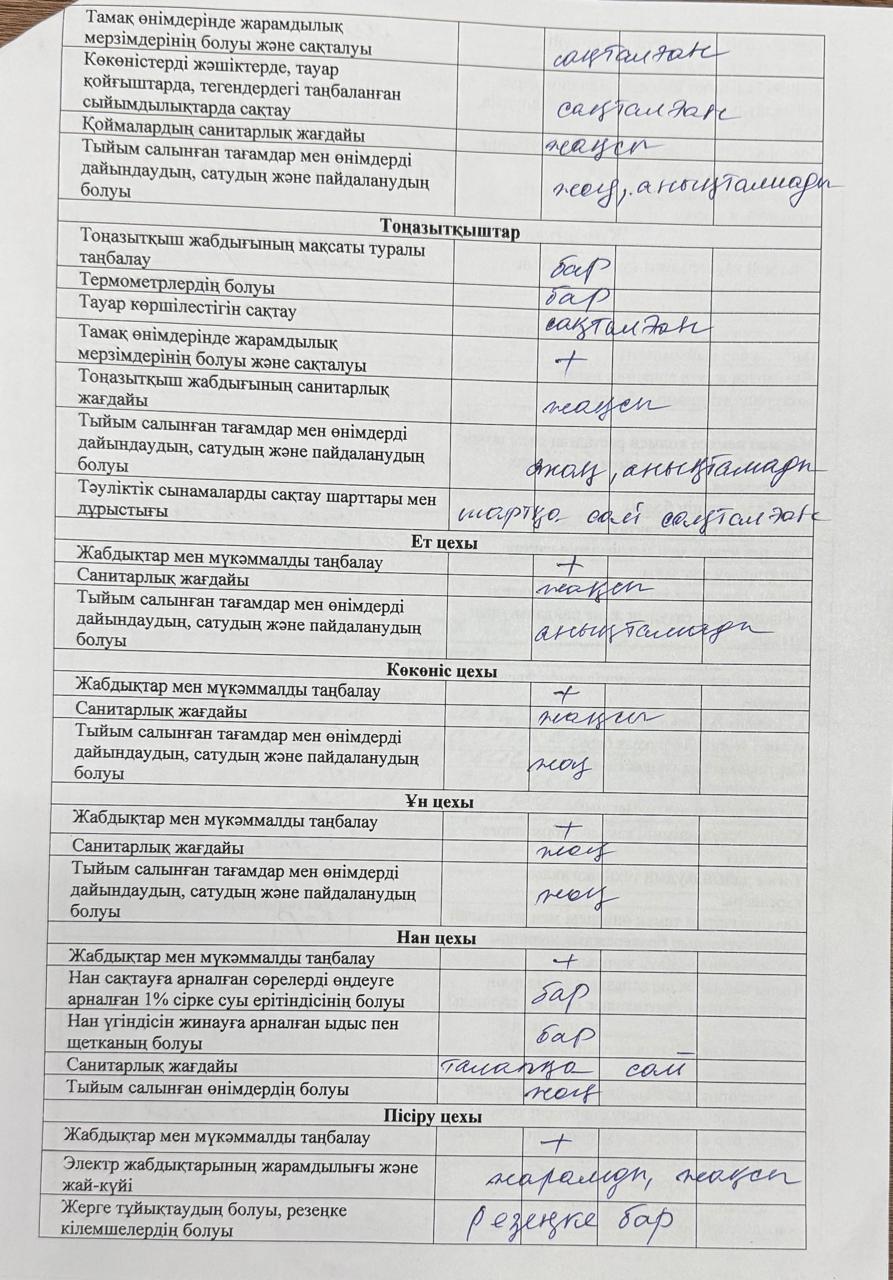 Тамақ өнімдерінде жарамдылық
мерзімдерінің болуы және сақталуы сақталған
Көкөністерді жәшіктерде, тауар
қойғыштарда, тегендердегі таңбаланған
сыйымдылықтарда сақтау сақталған
Қоймалардың санитарлық жағдайы жақсы
Тыйым салынған тағамдар мен өнімдерді
дайындаудың, сатудың және пайдаланудың
болуы жоқ, анықталмады
Тоңазытқыштар
Тоңазытқыш жабдығының мақсаты туралы
таңбалау бар
Термометрлердің болуы бар
Тауар көршілестігін сақтау сақталған
Тамақ өнімдерінде жарамдылық
мерзімдерінің болуы және сақталуы +
Тоңазытқыш жабдығының санитарлық
жағдайы жақсы
Тыйым салынған тағамдар мен өнімдерді
дайындаудың, сатудың және пайдаланудың
болуы жоқ, анықтамады
Тәуліктік сынамаларды сақтау шарттары мен
дұрыстығы шартқа сай сақталған
Ет цехы
Жабдықтар мен мүкәммалды таңбалау +
Санитарлық жағдайы жақсы
Тыйым салынған тағамдар мен өнімдерді
дайындаудың, сатудың және пайдаланудың
болуы анықталмады
Көкөніс цехы
Жабдықтар мен мүкәммалды таңбалау +
Санитарлық жағдайы жақсы
Тыйым салынған тағамдар мен өнімдерді
дайындаудың, сатудың және пайдаланудың
болуы жоқ
Ұн цехы
Жабдықтар мен мүкәммалды таңбалау +
Санитарлық жағдайы жоқ
Тыйым салынған тағамдар мен өнімдерді
дайындаудың, сатудың және пайдаланудың
болуы жоқ
Нан цехы
Жабдықтар мен мүкәммалды таңбалау +
Нан сақтауға арналған сөрелерді өңдеуге
арналған 1% сірке суы ерітіндісінің болуы бар
Нан үгіндісін жинауға арналған ыдыс пен
щетканың болуы бар
Санитарлық жағдайы талапқа сай
Тыйым салынған өнімдердің болуы жоқ
Пісіру цехы
Жабдықтар мен мүкәммалды таңбалау +
Электр жабдықтарының жарамдылығы және
жай-күйі жарамды, жақсы
Жерге тұйықтаудың болуы, резеңке
кілемшелердің болуы резеңке бар